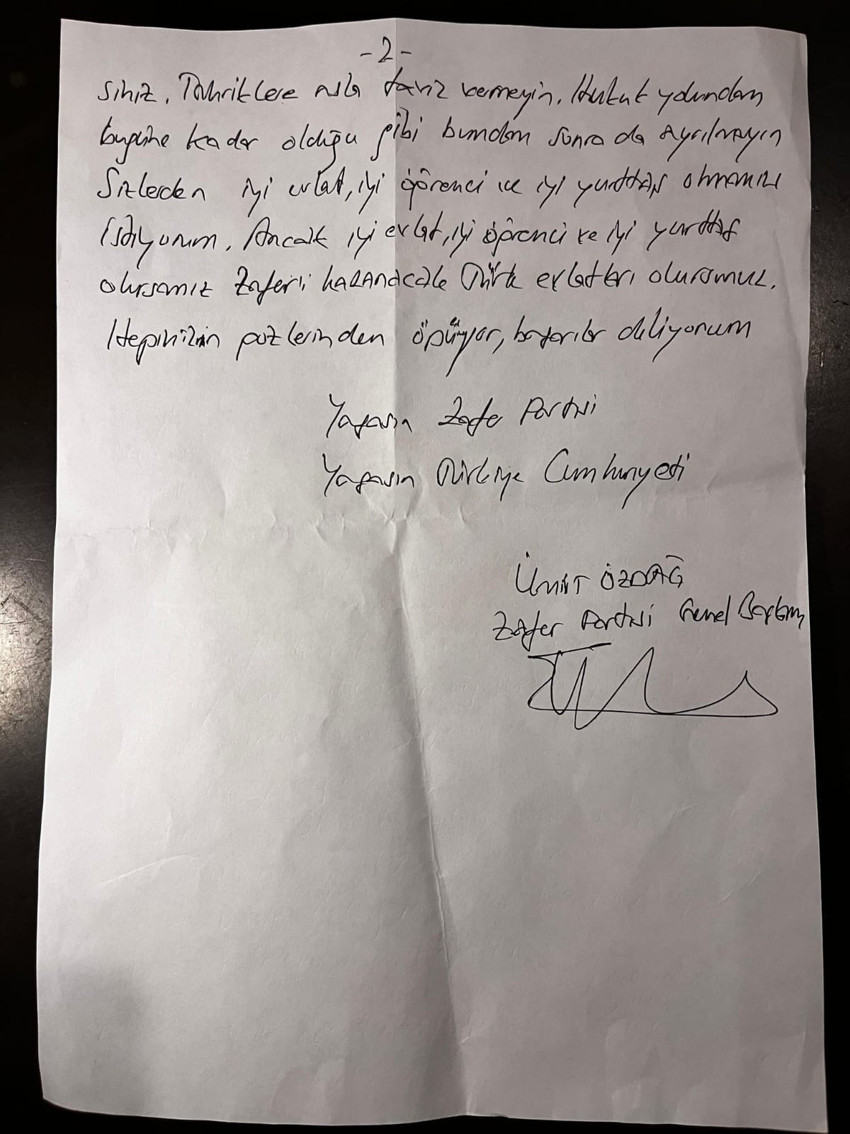 -2-
siniz. Tahriklere asla taviz vermeyin. Hukuk yolundan
bugüne kadar olduğu gibi bundan sonra da ayrılmayın
Sizlerden iyi evlat, iyi öğrenci ve iyi yurttaş olmanızı
istiyorum. Ancak iyi evlat, iyi öğrenci ve iyi yurttaş
olursanız Zaferi kazanacak Türk evlatları olursunuz.
Hepinizin gözlerinden öpüyor, başarılar diliyorum
Yaşasın Zafer Partisi
Yaşasın Türkiye Cumhuriyeti
Ümit ÖZDAĞ
Zafer Partisi Genel Başkanı